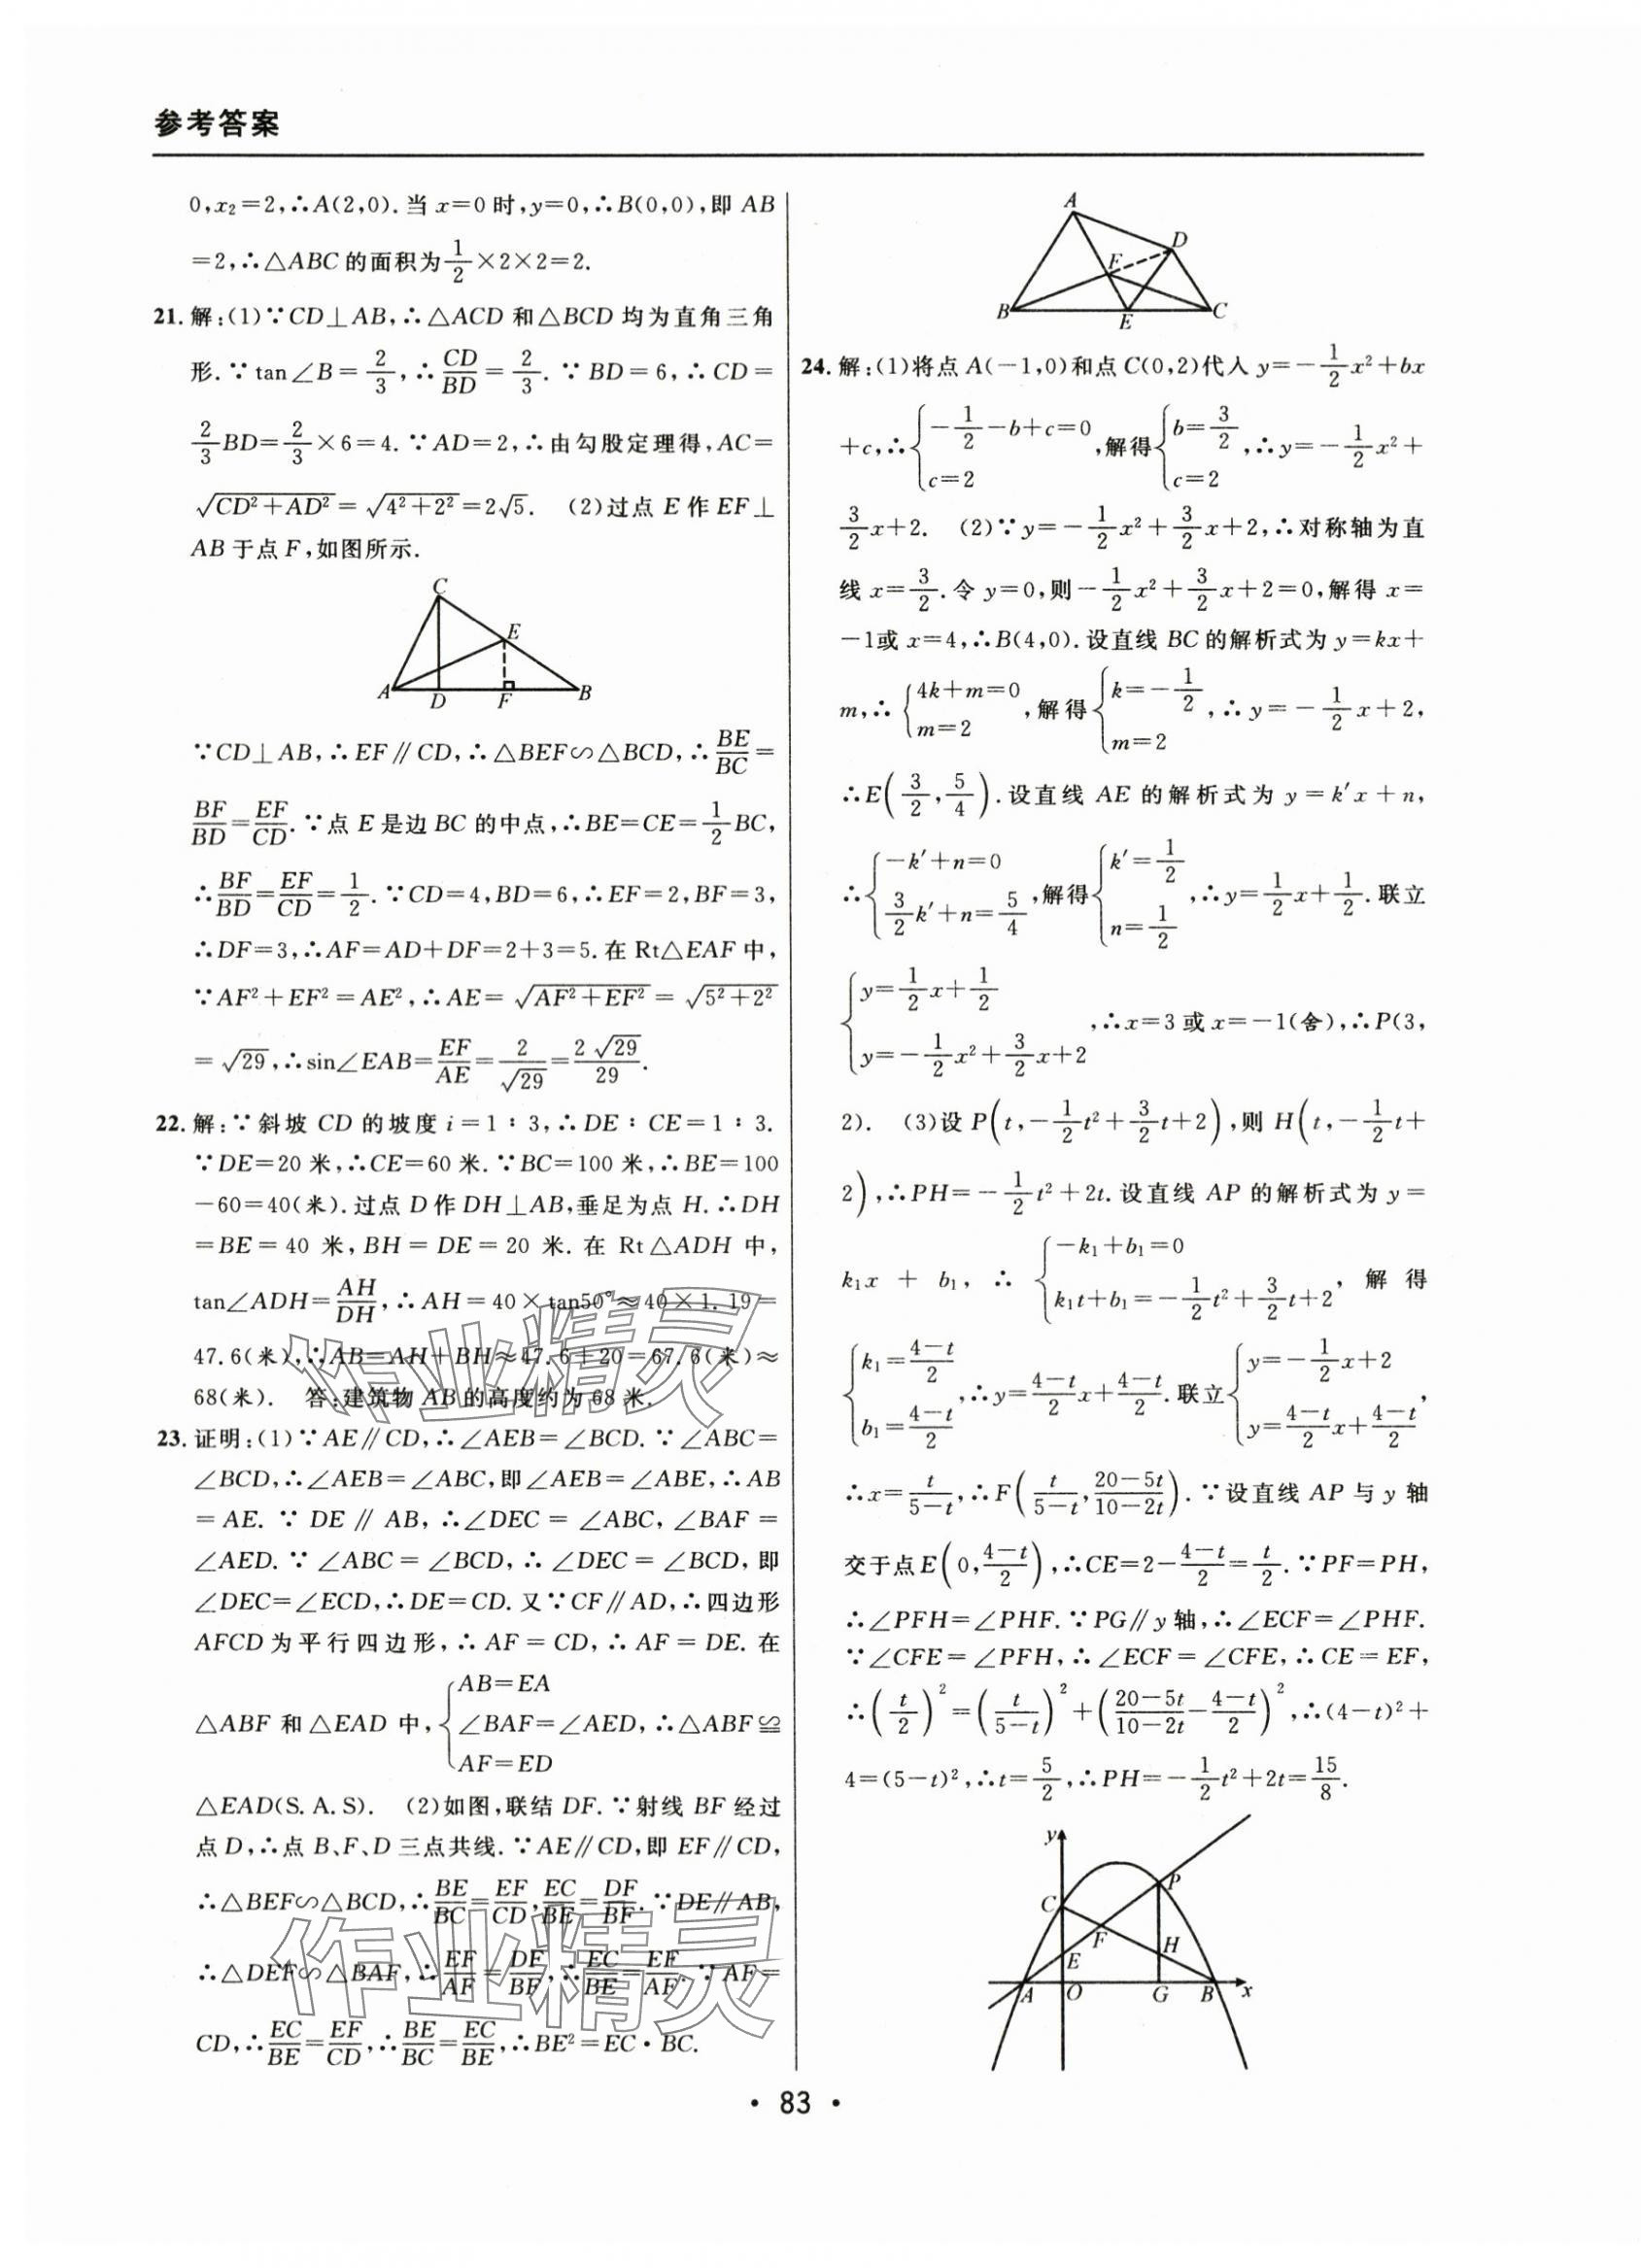 参考答案
0,x₂=2,∴A(2,0).当x=0时,y=0,∴B(0,0),即AB
=2,∴△ABC的面积为1/2×2×2=2.
21.解:(1)∵CD⊥AB,∴△ACD和△BCD均为直角三角
形.∵tan∠B=2/3,∴CD/BD=2/3.∵BD=6,∴CD=
2/3BD=2/3×6=4.∵AD=2,∴由勾股定理得,AC=
√(CD²+AD²)=√(4²+2²)=2√5. (2)过点E作EF⊥
AB于点F,如图所示.
C
E
A D F B
∵CD⊥AB,∴EF∥CD,∴△BEF∽△BCD,∴BE/BC=
BF/BD=EF/CD.∵点E是边BC的中点,∴BE=CE=1/2BC,
∴BF/BD=EF/CD=1/2.∵CD=4,BD=6,∴EF=2,BF=3,
∴DF=3,∴AF=AD+DF=2+3=5.在Rt△EAF中,
∵AF²+EF²=AE²,∴AE=√(AF²+EF²)=√(5²+2²)
=√29,∴sin∠EAB=EF/AE=2/√29=2√29/29.
22.解:∵斜坡CD的坡度i=1∶3,∴DE∶CE=1∶3.
∵DE=20米,∴CE=60米.∵BC=100米,∴BE=100
-60=40(米).过点D作DH⊥AB,垂足为点H.∴DH
=BE=40米,BH=DE=20米.在Rt△ADH中,
tan∠ADH=AH/DH,∴AH=40×tan50°≈40×1.19=
47.6(米),∴AB=AH+BH≈47.6+20=67.6(米)≈
68(米). 答:建筑物AB的高度约为68米.
23.证明:(1)∵AE∥CD,∴∠AEB=∠BCD.∵∠ABC=
∠BCD,∴∠AEB=∠ABC,即∠AEB=∠ABE,∴AB
=AE.∵DE∥AB,∴∠DEC=∠ABC,∠BAF=
∠AED.∵∠ABC=∠BCD,∴∠DEC=∠BCD,即
∠DEC=∠ECD,∴DE=CD.又∵CF∥AD,∴四边形
AFCD为平行四边形,∴AF=CD,∴AF=DE.在
△ABF和△EAD中,{AB=EA
∠BAF=∠AED,∴△ABF≌
AF=ED
△EAD(S.A.S). (2)如图,联结DF.∵射线BF经过
点D,∴点B、F、D三点共线.∵AE∥CD,即EF∥CD,
∴△BEF∽△BCD,∴BE/BC=EF/CD,EC/BE=DF/BF.∵DE∥AB,
∴△DEF∽△BAF,∴EF/AF=DF/BF,∴EC/BE=EF/AF.∵AF=
CD,∴EC/BE=EF/CD,∴BE/BC=EC/BE,∴BE²=EC·BC.
A
D
F
B E C
24.解:(1)将点A(-1,0)和点C(0,2)代入y=-1/2x²+bx
+c,∴{-1/2-b+c=0
c=2,解得{b=3/2
c=2,∴y=-1/2x²+
3/2x+2. (2)∵y=-1/2x²+3/2x+2,∴对称轴为直
线x=3/2.令y=0,则-1/2x²+3/2x+2=0,解得x=
-1或x=4,∴B(4,0).设直线BC的解析式为y=kx+
m,∴{4k+m=0
m=2,解得{k=-1/2
m=2,∴y=-1/2x+2,
∴E(3/2,5/4).设直线AE的解析式为y=k′x+n,
∴{-k′+n=0
3/2k′+n=5/4,解得{k′=1/2
n=1/2,∴y=1/2x+1/2.联立
{y=1/2x+1/2
y=-1/2x²+3/2x+2,∴x=3或x=-1(舍),∴P(3,
2). (3)设P(t,-1/2t²+3/2t+2),则H(t,-1/2t+
2),∴PH=-1/2t²+2t.设直线AP的解析式为y=
k₁x+b₁,∴{-k₁+b₁=0
k₁t+b₁=-1/2t²+3/2t+2,解得
{k₁=(4-t)/2
b₁=(4-t)/2,∴y=(4-t)/2x+(4-t)/2.联立{y=-1/2x+2
y=(4-t)/2x+(4-t)/2,
∴x=t/(5-t),∴F(t/(5-t),(20-5t)/(10-2t)).∵设直线AP与y轴
交于点E(0,(4-t)/2),∴CE=2-(4-t)/2=t/2.∵PF=PH,
∴∠PFH=∠PHF.∵PG∥y轴,∴∠ECF=∠PHF.
∵∠CFE=∠PFH,∴∠ECF=∠CFE,∴CE=EF,
∴(t/2)²=(t/(5-t))²+((20-5t)/(10-2t)-(4-t)/2)²,∴(4-t)²+
4=(5-t)²,∴t=5/2,∴PH=-1/2t²+2t=15/8.
y
P
C
F
H
E
A O G B x
· 83 ·
作业精灵
作业精灵